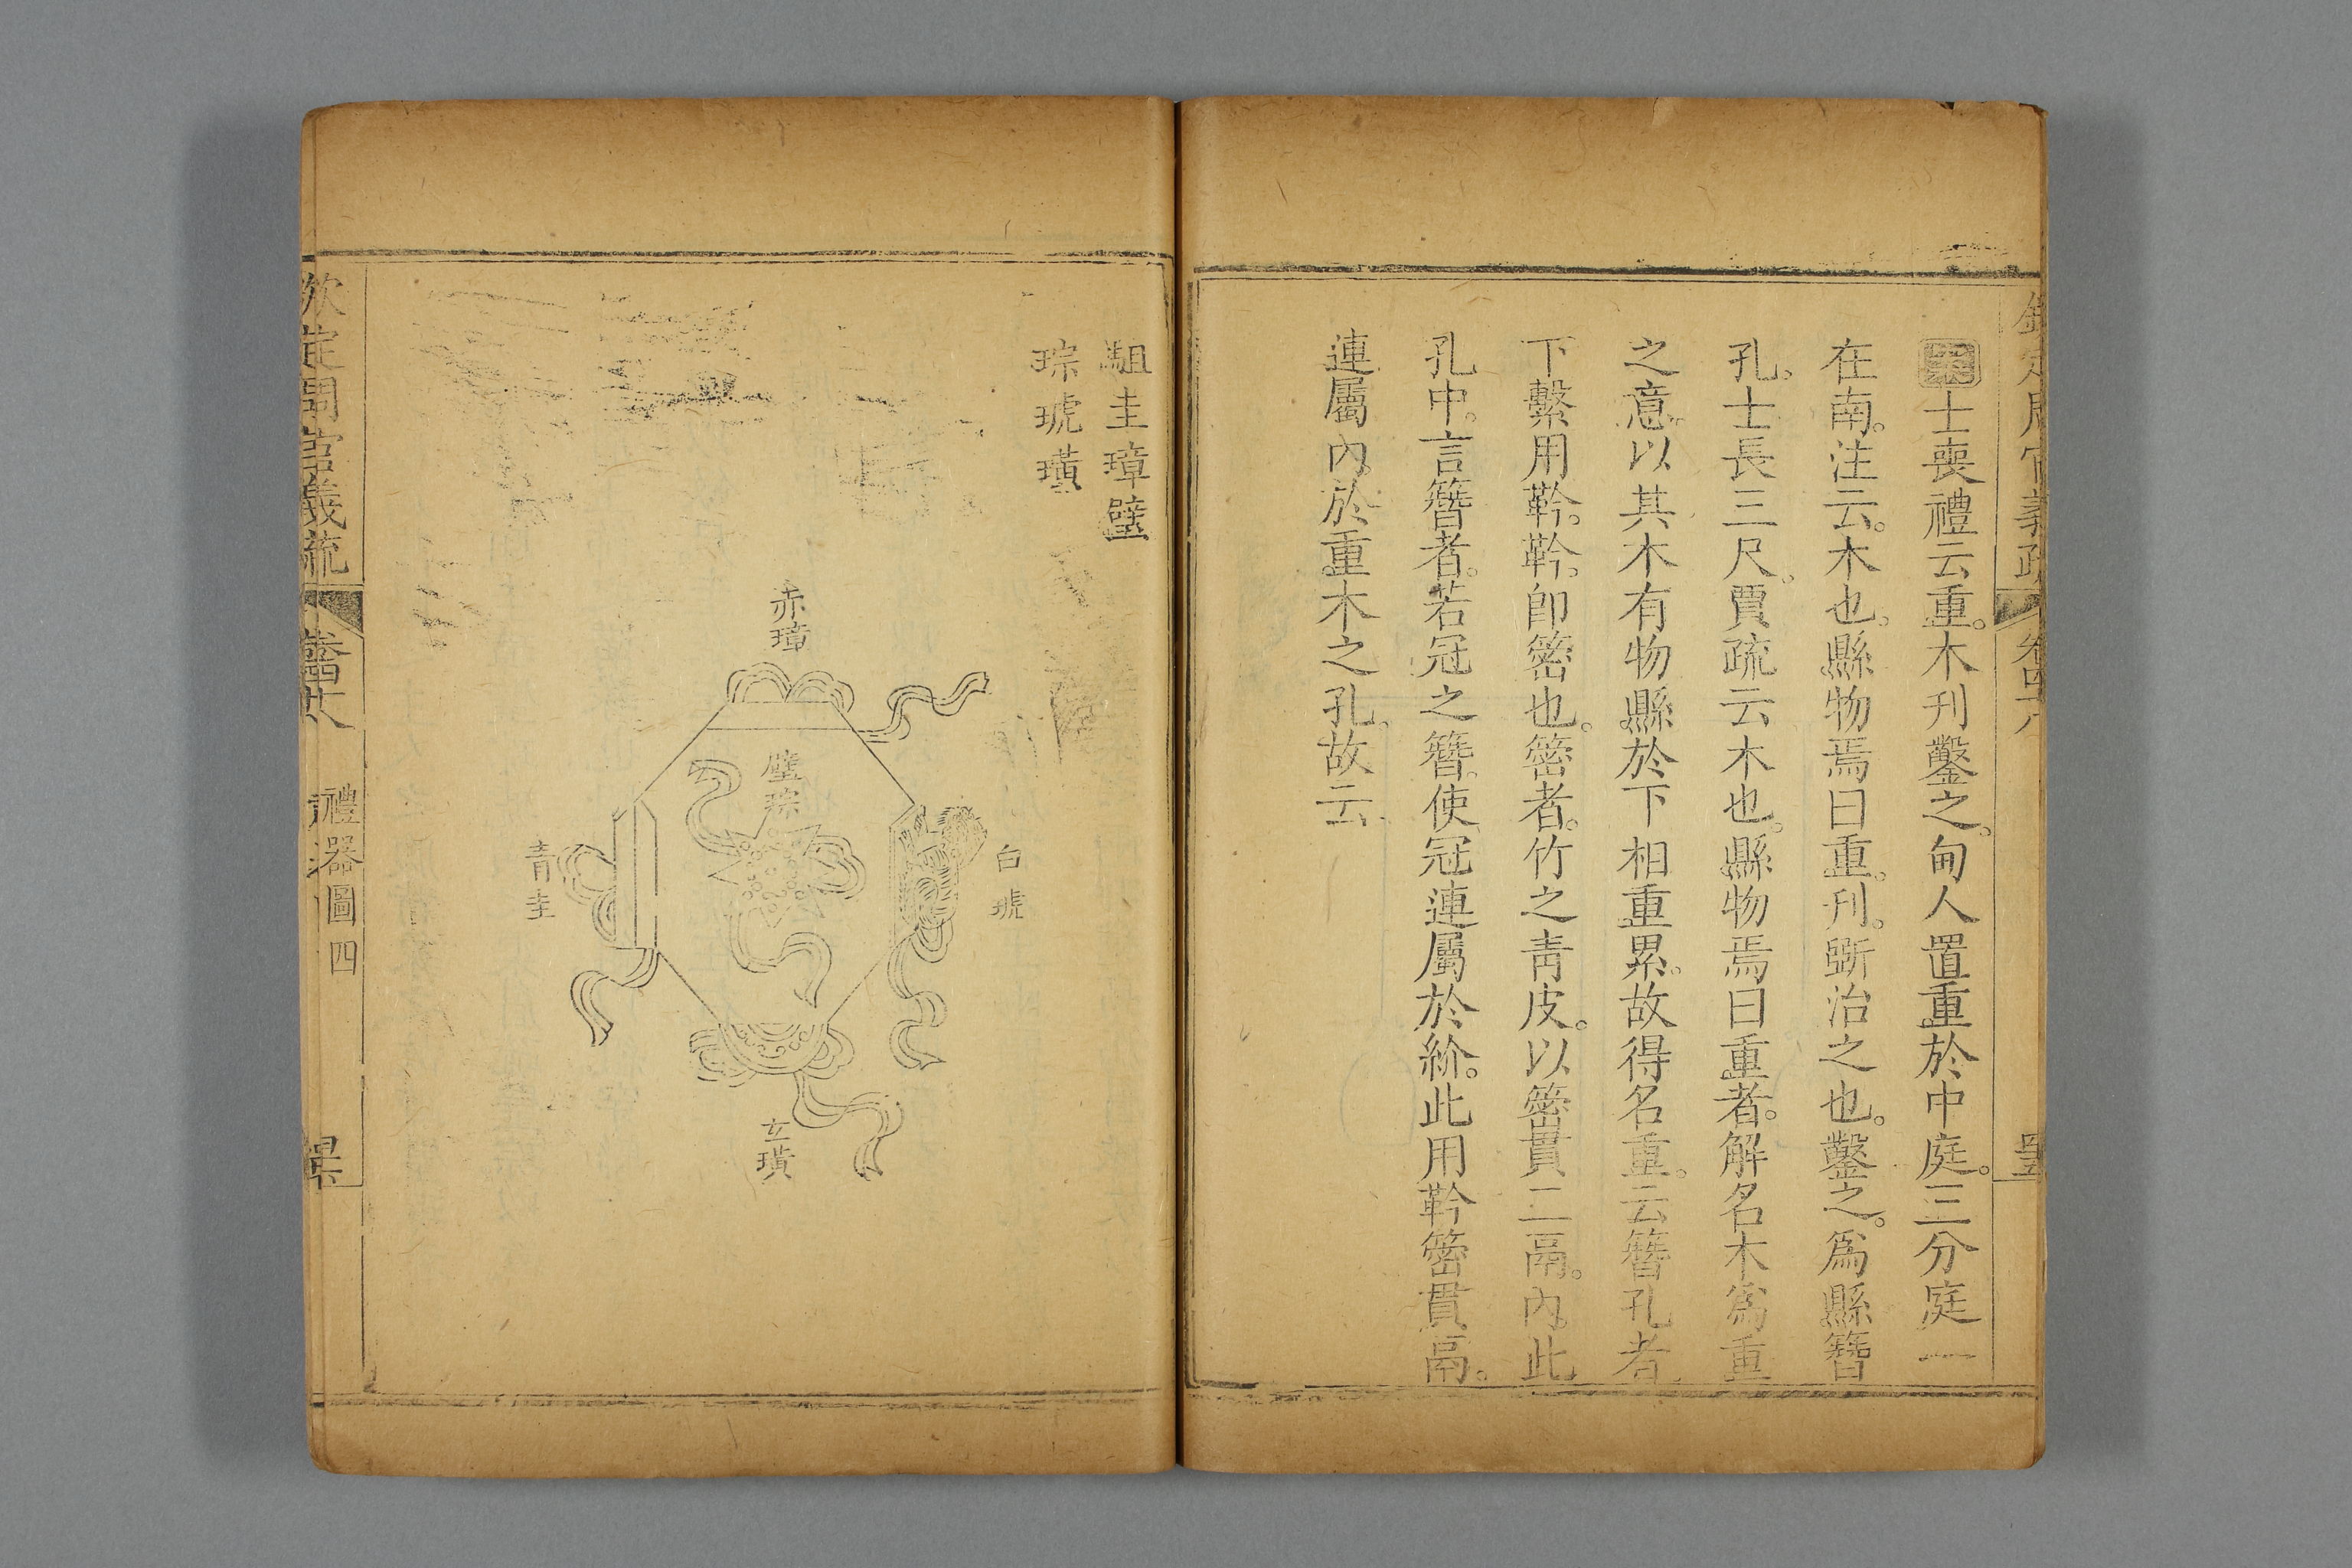 士喪禮云重。木刊鑿之。甸人置重於中庭。三分庭一
在南。注云。木也。縣物焉曰重。刊。斲治之也。鑿之。爲縣簪
孔。士長三尺。賈疏云木也。縣物焉曰重者。解名木爲重
之意。以其木有物縣於下相重累。故得名重。云簪孔者
下繫用靲。靲。卽䈼也。䈼者。竹之青皮。以䈼貫二鬲。內此
孔中。言簪者。若冠之簪。使冠連屬於紒。此用靲䈼貫鬲。
連屬內於重木之孔。故云
駔圭璋璧
琮琥璜
赤璋
璧琮
白琥
青圭
玄璜
禮器圖四